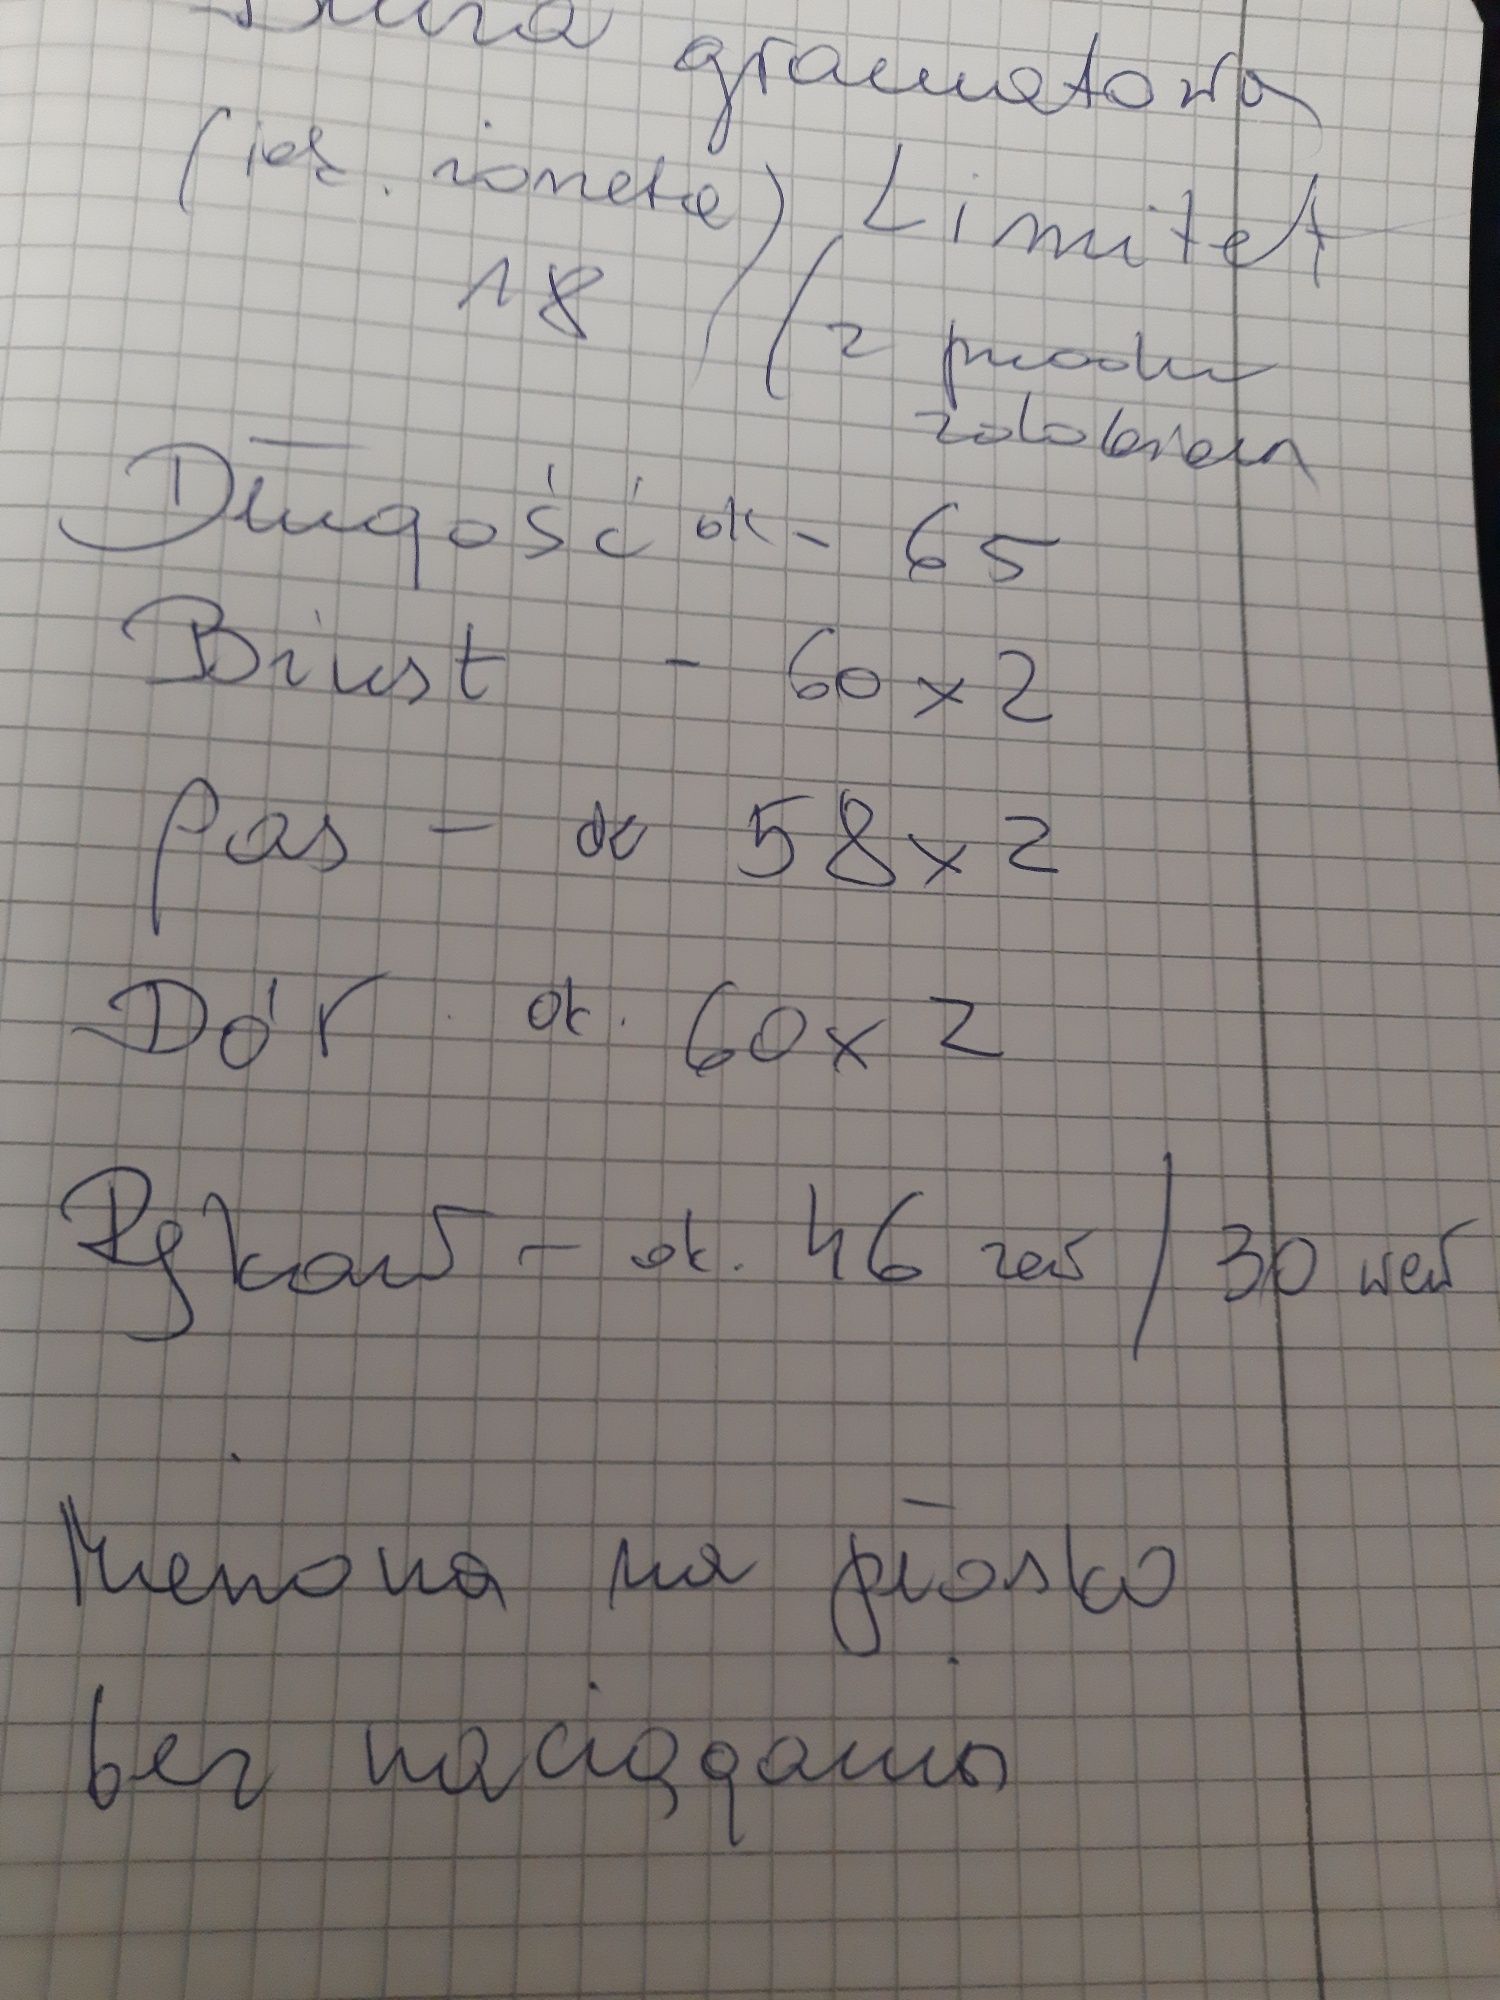 Bluza granatowa
(jak. żoneta) Limitet
18 (z przodu
zdobiena
Długość ok - 65
Biust - 60 x 2
Pas - ok 58 x 2
Dół ok. 60 x 2
Rękaw - ok. 46 zew / 30 wew
Mierzona na płasko
bez naciągania